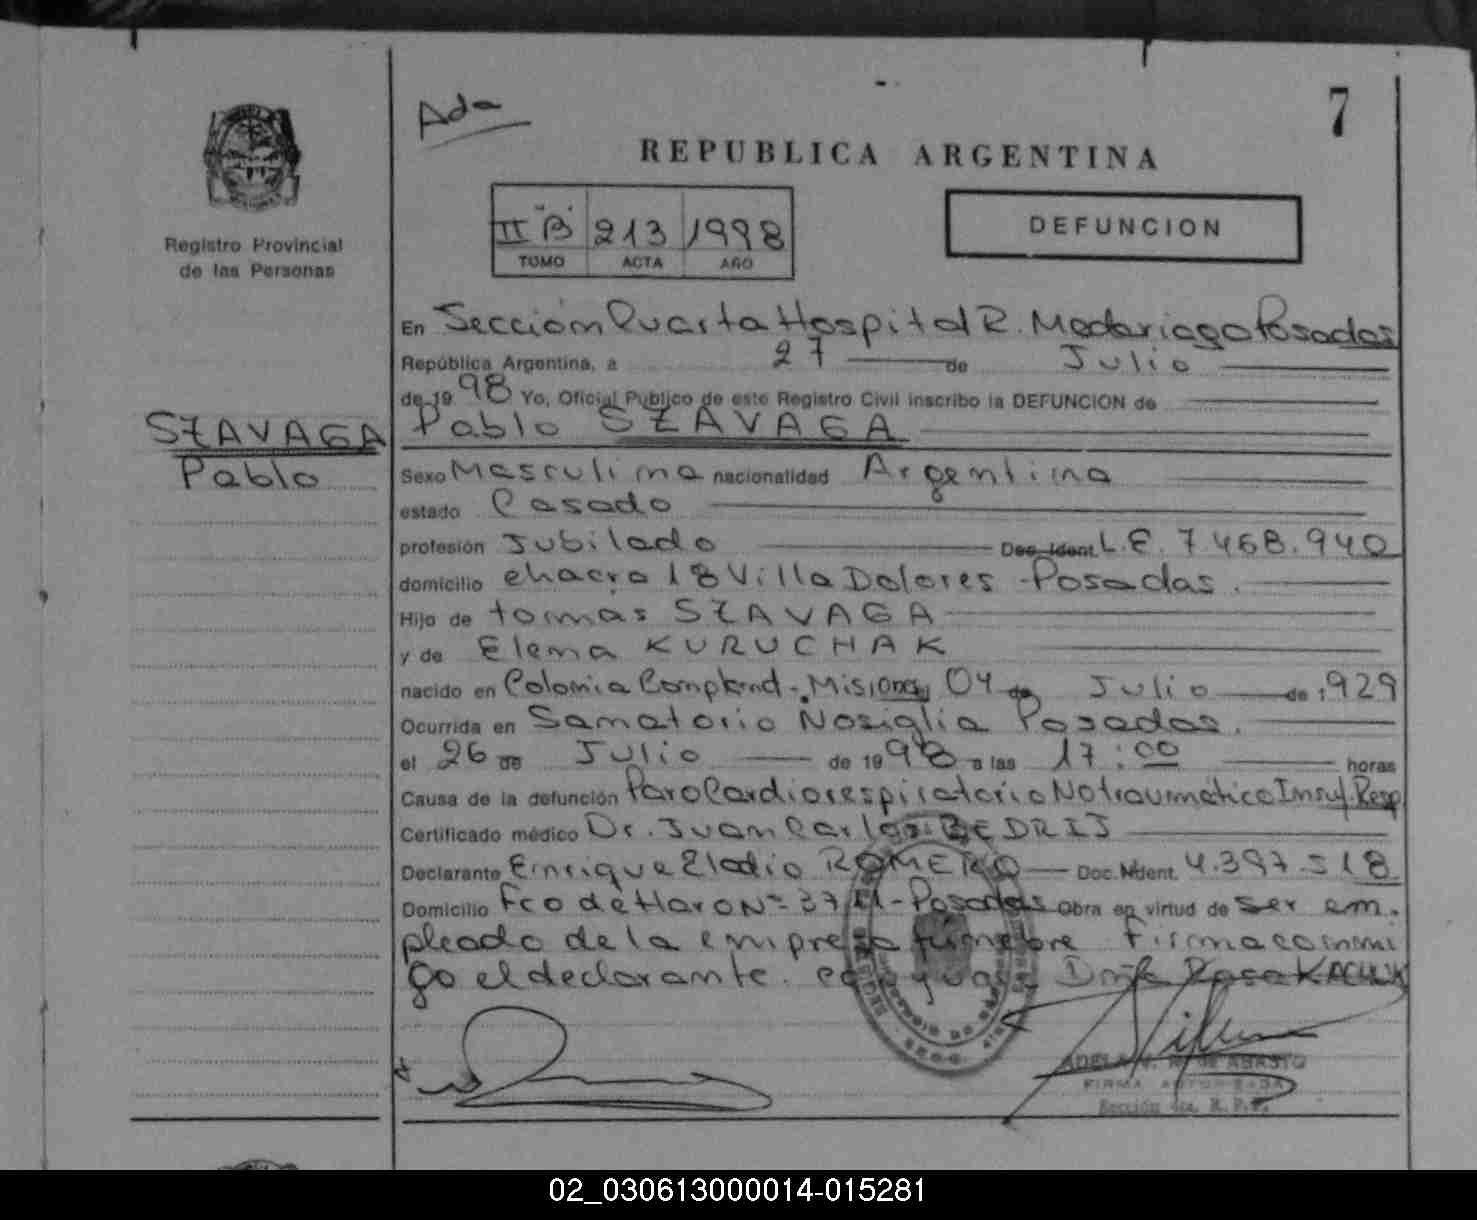 7
Ada
REPUBLICA ARGENTINA
II "B" 213 1998
TOMO ACTA AÑO
DEFUNCION
Registro Provincial
de las Personas
SZAVAGA
Pablo
En Sección Cuarta Hospital R. Madariaga Posadas
República Argentina, a 27 de Julio
de 19 98 Yo, Oficial Publico de este Registro Civil inscribo la DEFUNCION de
Pablo SZAVAGA
Sexo Masculino nacionalidad Argentina
estado Casado
profesión Jubilado Doc. Ident. L.E. 7468.940
domicilio chacra 18 Villa Dolores - Posadas.
Hijo de tomás SZAVAGA
y de Elena KURUCHAK
nacido en Colonia - Misiones 04 de Julio de 1929
Ocurrida en Sanatorio Nosiglia Posadas.
el 26 de Julio de 1998 a las 17:00 horas
Causa de la defunción Paro Cardiorespiratorio No traumático Insuf. Resp
Certificado médico Dr. Juan Carlos BEDRIJ
Declarante Enrique Eladio ROMERO Doc. Ident. 4.397.518
Domicilio Fco de Haro Nº 37 - Posadas Obra en virtud de ser em-
pleado de la empresa funebre Firma conmi
go el declarante. Rosa KACHUK
FIRMA AUTORIZADA
Sección 4ta. R.P.P.
02_030613000014-015281